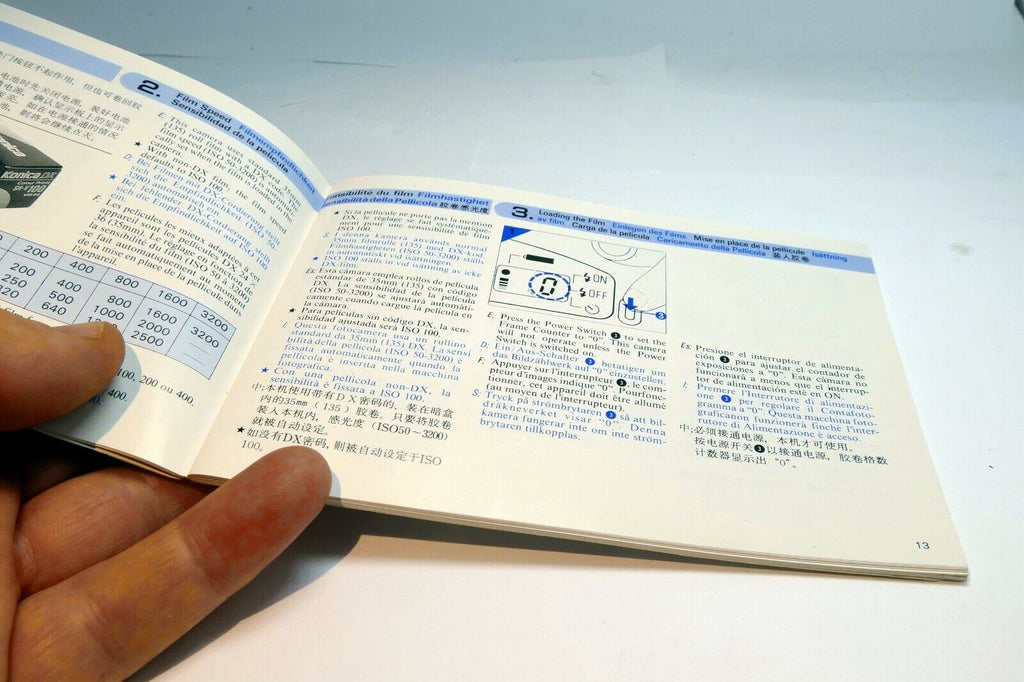 2. Film Speed Filmempfindlichkeit
Sensibilidad de la película
E: This camera uses standard 35mm
(135) roll film with a DX code. The
film speed (ISO 50-3200) is automati-
cally set when the film is loaded in the
camera.
★ With non-DX film, the film speed
defaults to ISO 100.
D: Bei Filmen mit DX-Codierung
ein.
F: Les pellicules les mieux adaptées à cet
appareil sont les pellicules en 24 x
la sensibilité du film (ISO 50-3200)
se fait automatiquement au moment
de la mise en place de la pellicule dans
l'appareil.
Konica DX
200 400 800 1600 3200
200 400 800 1600 3200
250 500 1000 2000
320 640 2500
100, 200 ou 400.
400.
sensibilité du film Filmhastighet
Sensibilità della Pellicola 胶卷感光度
★ Si la pellicule ne porte pas la mention
DX, le réglage se fait systématique-
ment pour une sensibilité de film
ISO 100.
S: I denna kamera används normal
35mm filmrulle (135) med DX-kod
(ISO 50-3200) ställs
automatiskt vid isättningen.
★ ISO 100 ställs in vid isättning av icke
film.
Es: Esta cámara emplea rollos de película
estándar de 35mm (135) con código
DX. La sensibilidad de la película
(ISO 50-3200) se ajustará automáti-
camente cuando cargue la película en
la cámara.
★ Para películas sin código DX, la sen-
sibilidad ajustada será ISO 100.
I: Questa fotocamera usa un rullino
standard da 35mm (135) DX. La sensi
bilità della pellicola (ISO 50-3200) è
fissata automaticamente quando la
pellicola è inserita nella macchina
fotografica.
★ Con una pellicola non-DX, la
sensibilità è fissata a ISO 100.
中:本机使用带有DX密码的，装在暗盒
内的35mm（135）胶卷。只要将胶卷
装入本机内，感光度（ISO50～3200）
就被自动设定。
★如没有DX密码，则被自动设定于ISO
100。
3. Loading the Film Einlegen des Films Mise en place de la pellicule Isättning
av film Carga de la película Caricamento della Pellicola 装入胶卷
1
0
ON
OFF
3
E: Press the Power Switch ❸ to set the
Frame Counter to "0". This camera
will not operate unless the Power
Switch is switched on.
D: Ein/Aus-Schalter ❸ betätigen um
das Bildzählwerk auf "0" einzustellen.
F: Appuyer sur l'interrupteur ❸, le com-
pteur d'images indique "0". Pour fonc-
tionner, cet appareil doit être allumé
(au moyen de l'interrupteur).
S: Tryck på strömbrytaren ❸ så att bil-
dräkneverket visar "0". Denna
kamera fungerar inte om inte ström-
brytaren tillkopplas.
Es: Presione el interruptor de alimenta-
ción ❸ para ajustar el contador de
exposiciones a "0". Esta cámara no
funcionará a menos que el interrup-
tor de alimentación esté en ON.
I: Premere l'Interrutore di alimentazi-
one ❸ per regolare il Contafoto-
gramma a "0". Questa macchina foto-
grafica non funzionerà finché l'inter-
rutore di Alimentazione è acceso.
中:必须接通电源，本机才可使用。
按电源开关❸以接通电源，胶卷格数
计数器显示出 "0"。
13